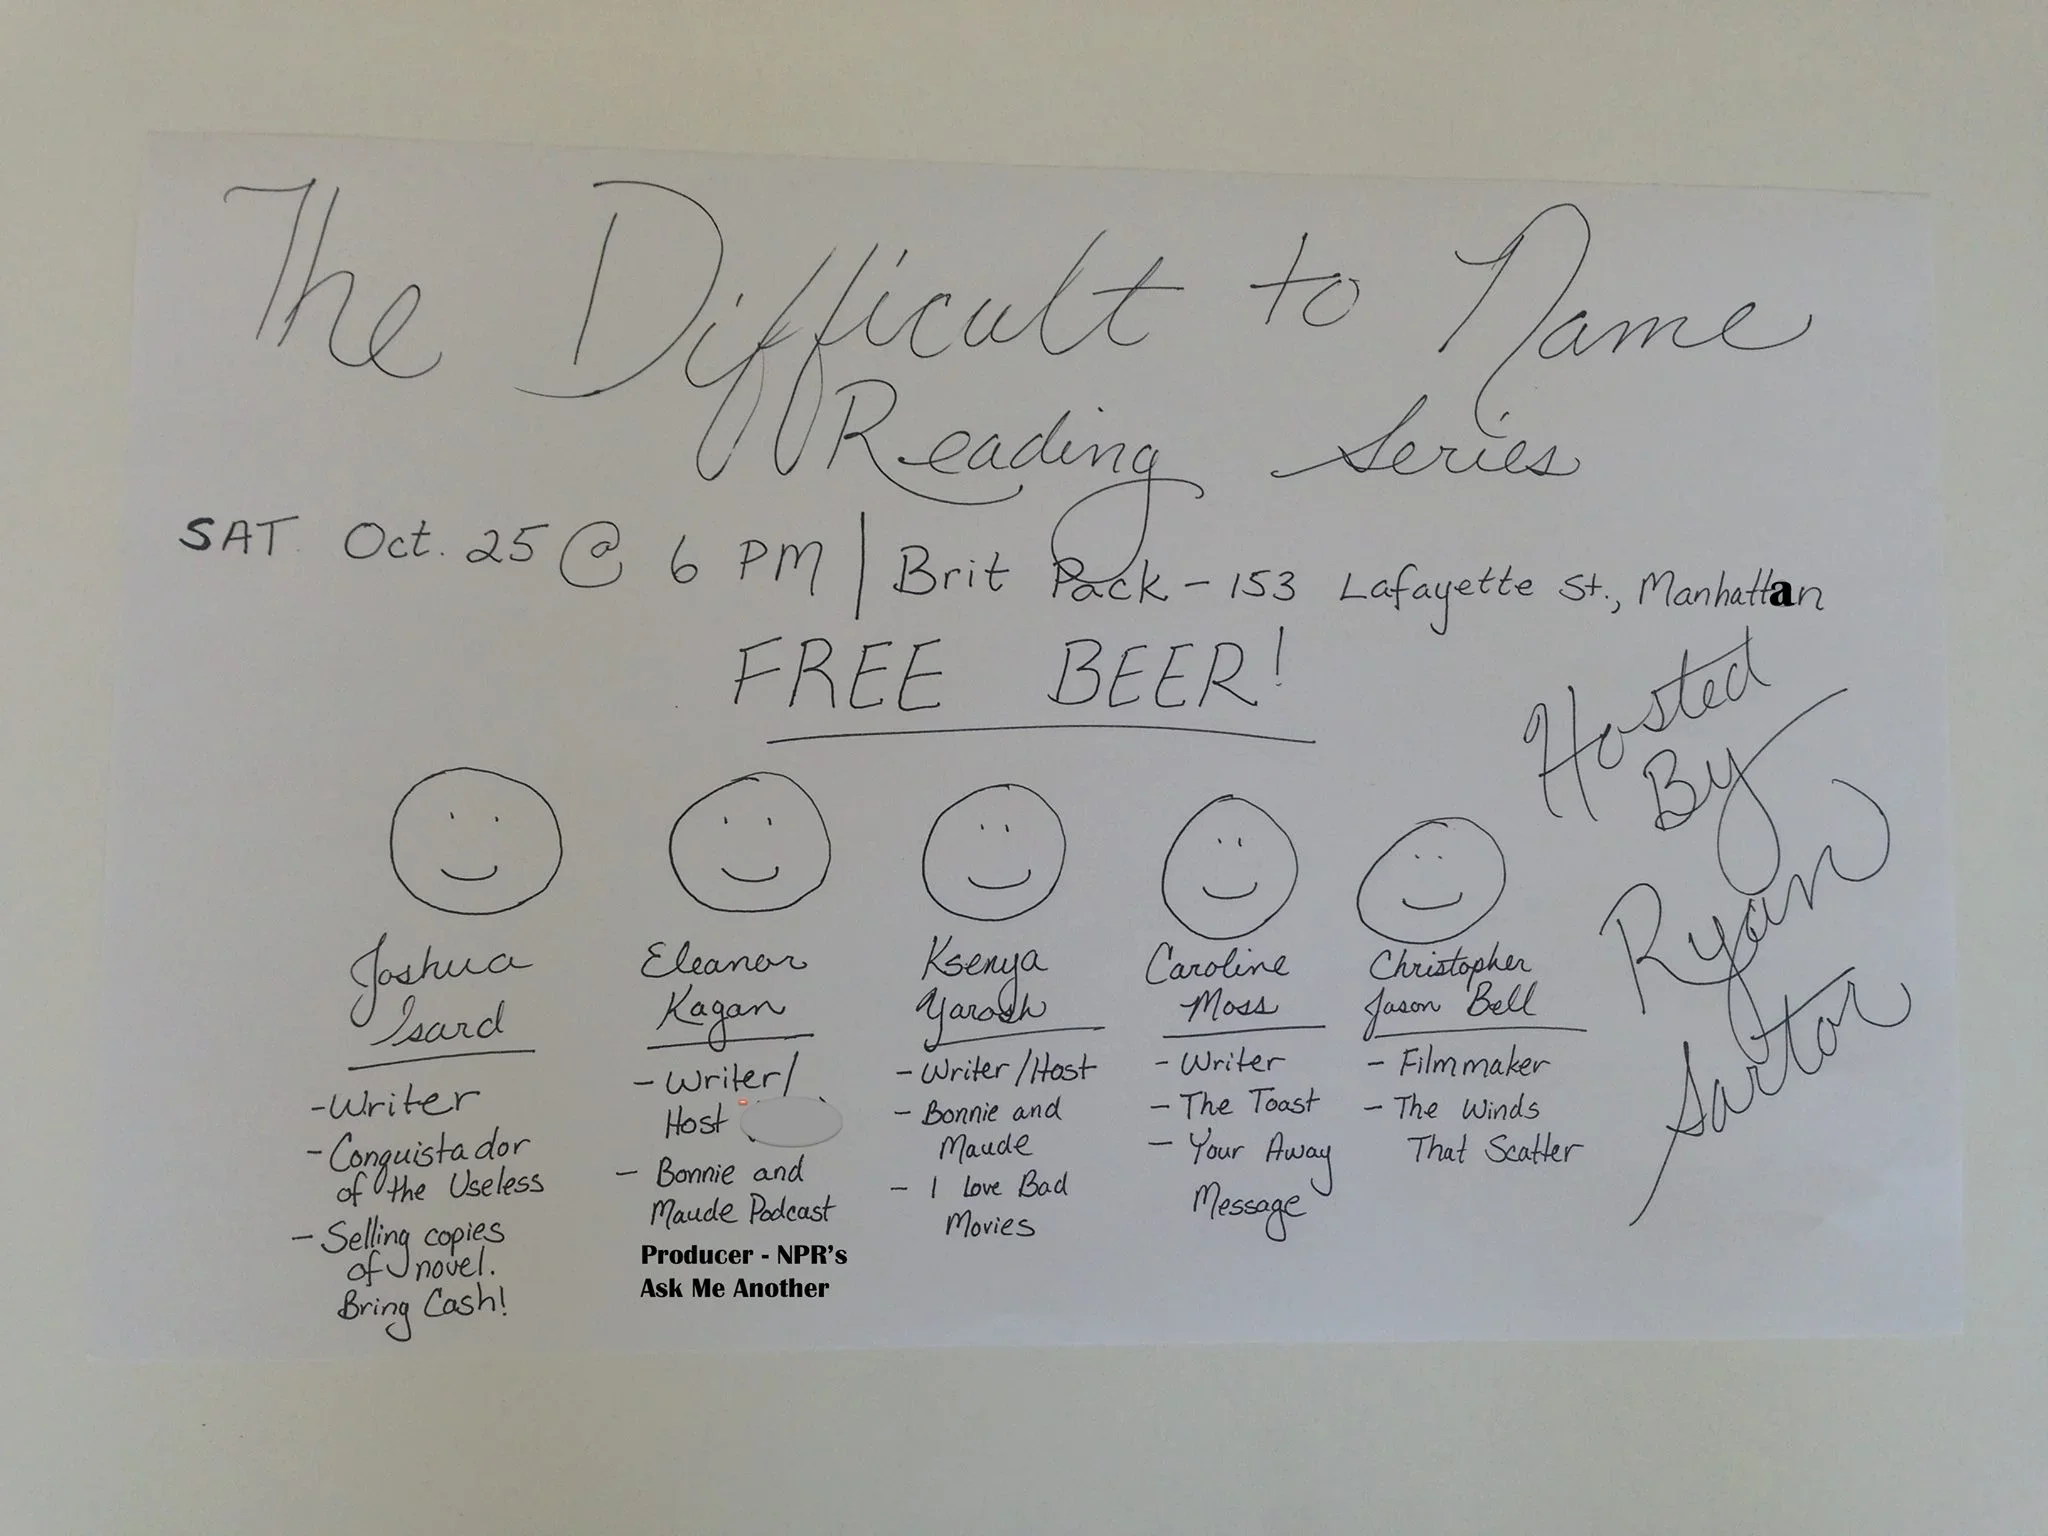 The Difficult to Name
Reading Series
SAT. Oct. 25 @ 6 PM | Brit Pack - 153 Lafayette St., Manhattan
FREE BEER!
Hosted
By
Ryan
Sartor
Joshua
Isard
- Writer
- Conquistador
of the Useless
- Selling copies
of novel.
Bring Cash!
Eleanor
Kagan
- Writer/
Host
- Bonnie and
Maude Podcast
Producer - NPR's
Ask Me Another
Ksenya
Yarosh
- Writer/Host
- Bonnie and
Maude
- I Love Bad
Movies
Caroline
Moss
- Writer
- The Toast
- Your Away
Message
Christopher
Jason Bell
- Filmmaker
- The Winds
That Scatter